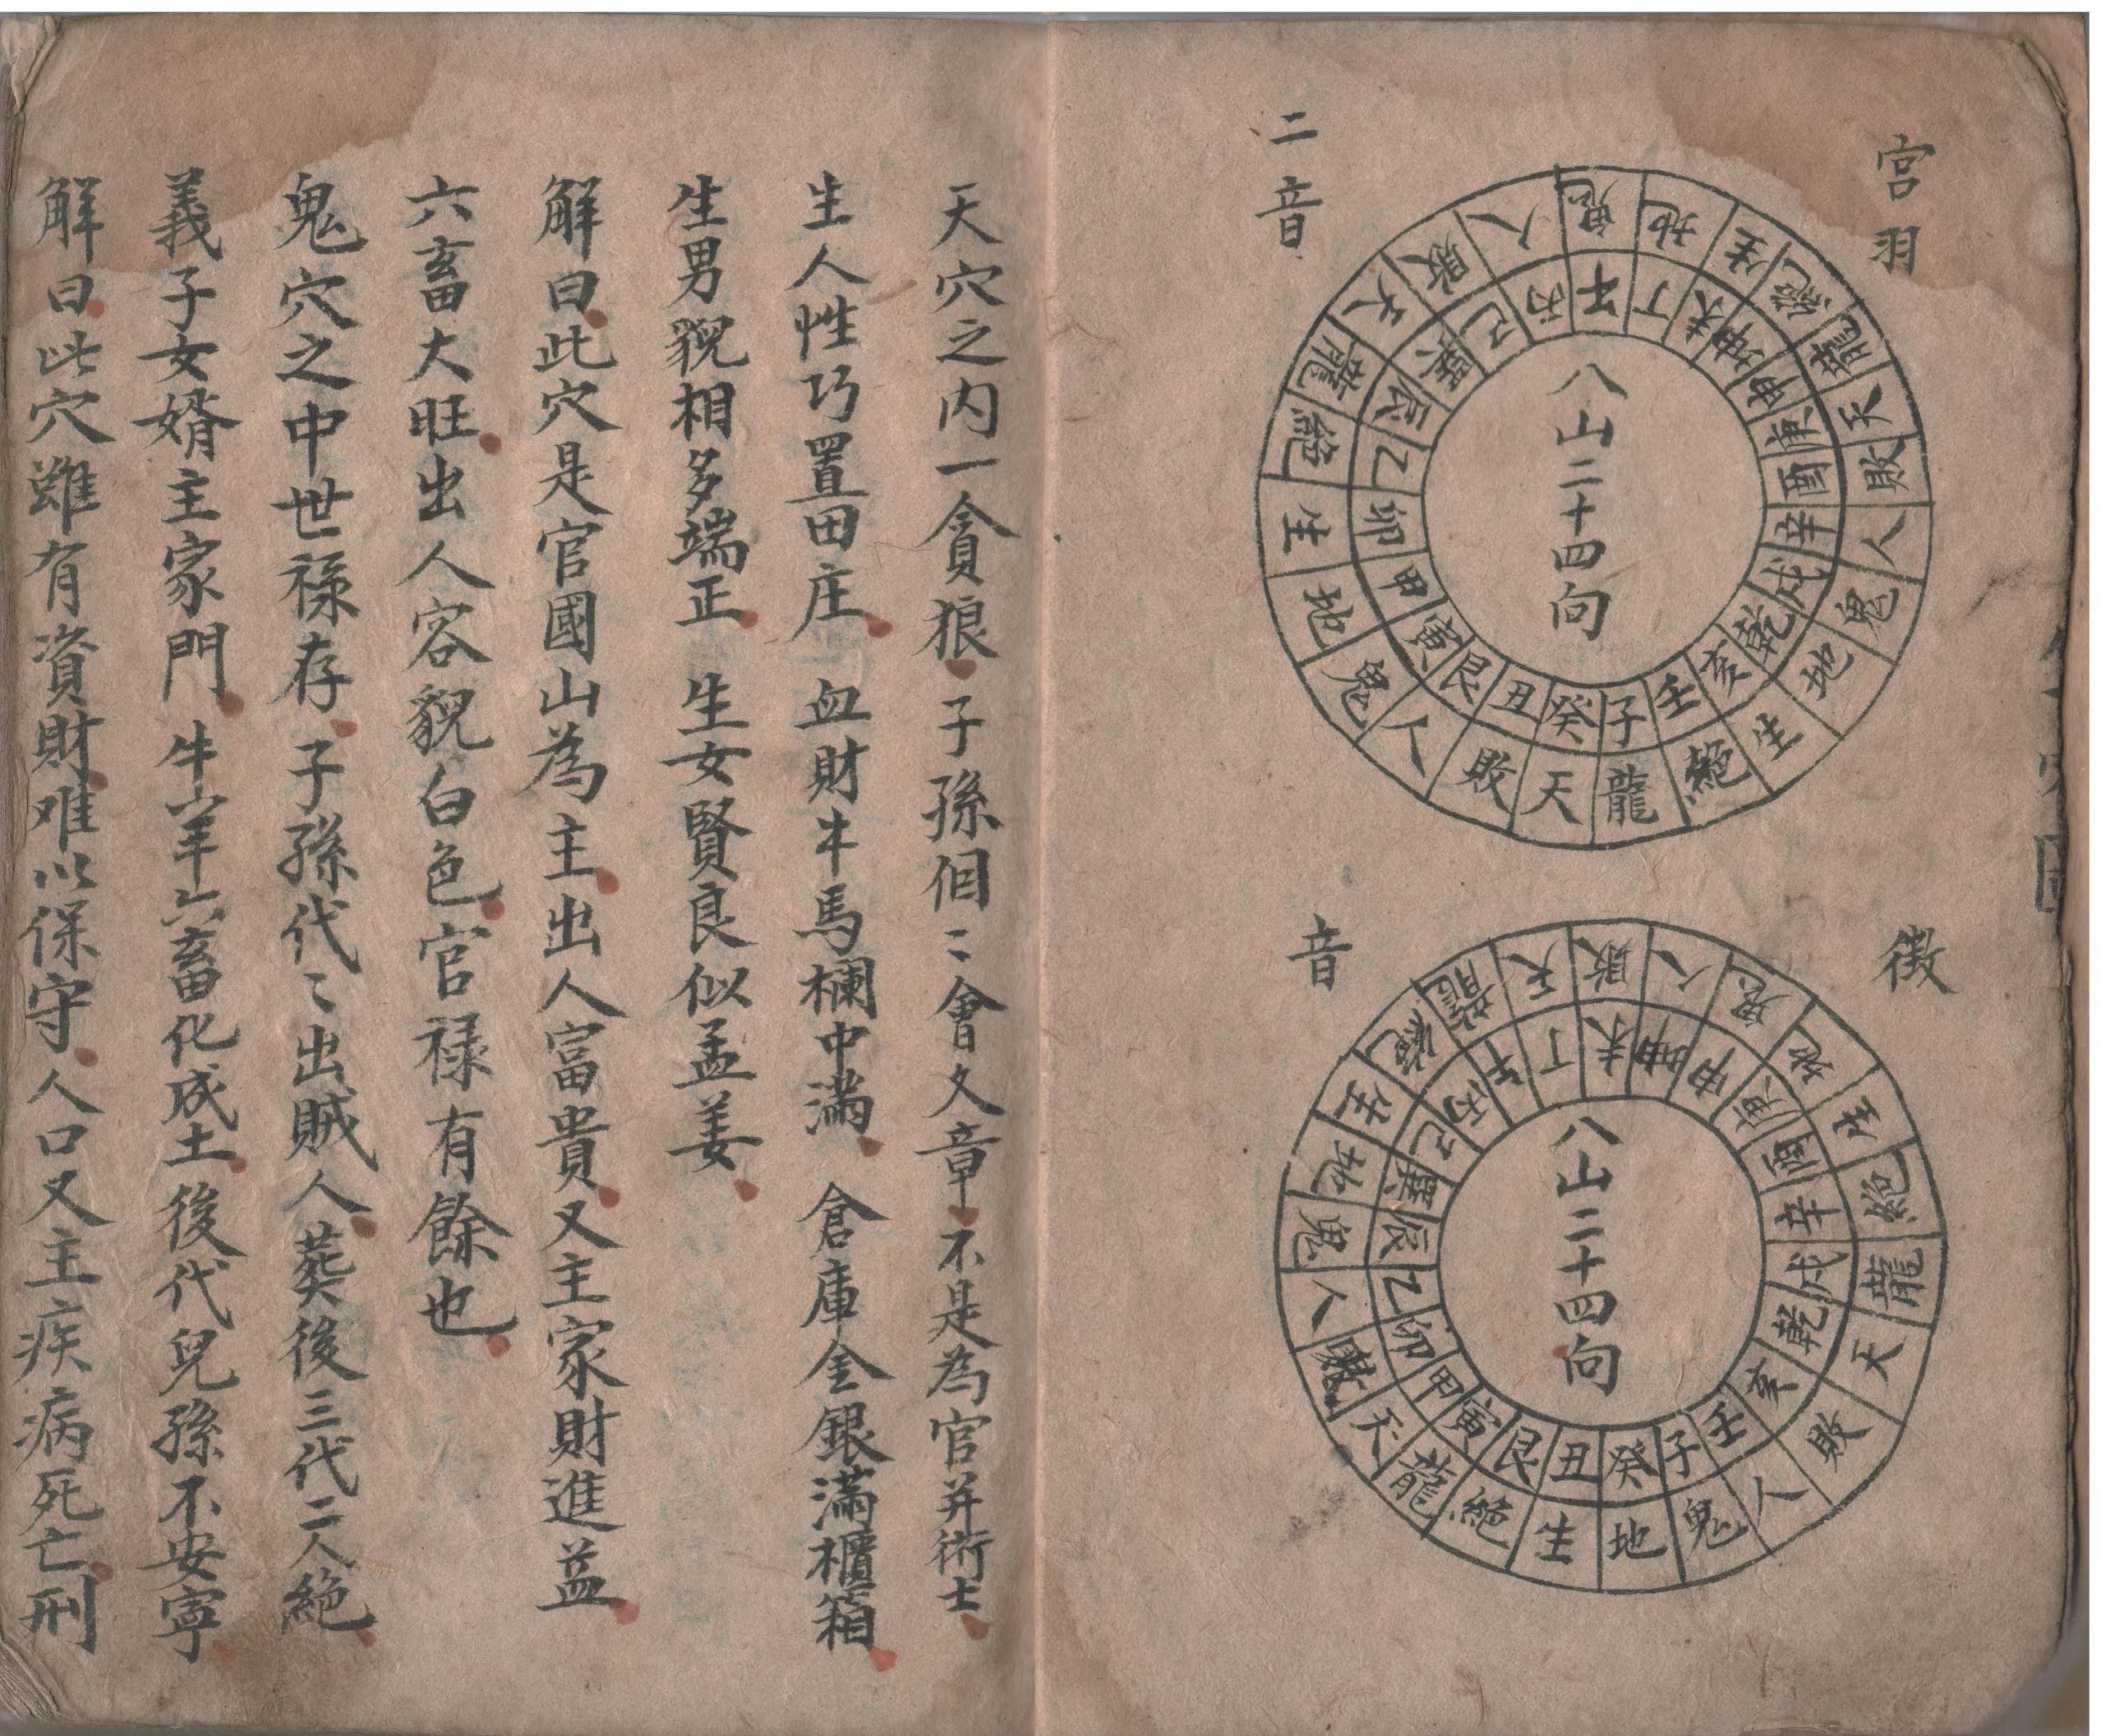 宮羽
二音
鬼地生絕龍天敗人鬼地生絕龍天敗人鬼地生絕龍天敗人
午丁未坤申庚酉辛戌乾亥壬子癸丑艮寅甲卯乙辰巽己丙
八山二十四向
徵
音
敗人鬼地生絕龍天敗人鬼地生絕龍天敗人鬼地生絕龍天
未坤申庚酉辛戌乾亥壬子癸丑艮寅甲卯乙辰巽己丙午丁
八山二十四向
天穴之内一貪狼子孫個々會文章不是為官并術士
生人性巧置田庄血財牛馬欄中滿倉庫金銀滿櫃箱
生男貌相多端正生女賢良似孟姜
解曰此穴是官國山為主出人富貴又主家財進益
六畜大旺出人容貌白色官禄有餘也
鬼穴之中世禄存子孫代々出賊人葬後三代二人絕
義子女婿主家門牛羊六畜化成土後代兒孫不安寧
解曰此穴雖有資財难以保守人口又主疾病死亡刑